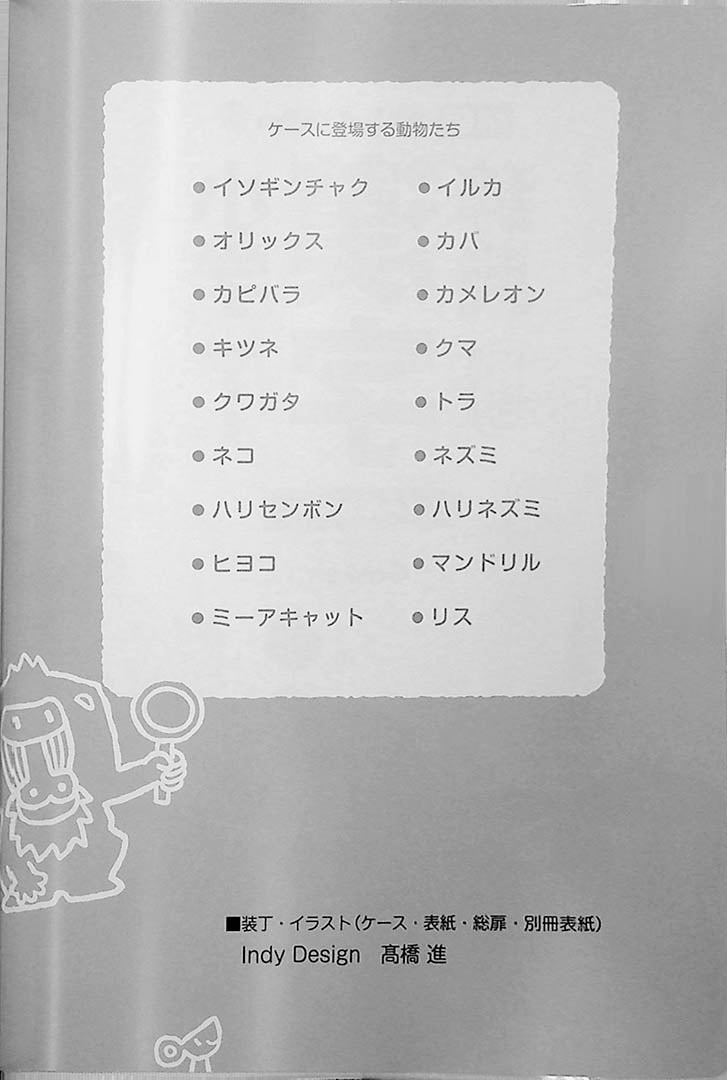 ケースに登場する動物たち
● イソギンチャク ● イルカ
● オリックス ● カバ
● カピバラ ● カメレオン
● キツネ ● クマ
● クワガタ ● トラ
● ネコ ● ネズミ
● ハリセンボン ● ハリネズミ
● ヒヨコ ● マンドリル
● ミーアキャット ● リス
■装丁・イラスト(ケース・表紙・総扉・別冊表紙)
Indy Design 髙橋 進